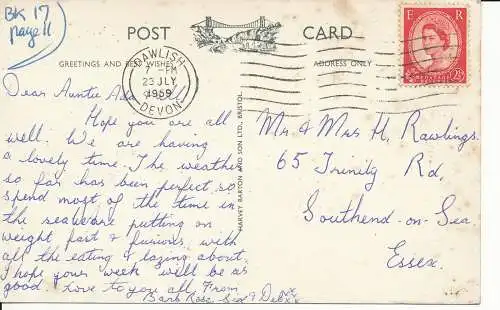 BK 17
page 11
POST CARD
GREETINGS AND BEST WISHES
ADDRESS ONLY
DAWLISH
PM
23 JLY
1959
DEVON
E R
2½
Dear Auntie Ada
Hope you are all
well. We are having
a lovely time. The weather
so far has been perfect so
spend most of the time in
the sea. We are putting on
weight fast & furious with
all the eating & lazing about.
I hope your week will be as
good. Love to you all From
Barb Rose Sid & Deb xx
HARVEY BARTON AND SON LTD., BRISTOL
Mr. & Mrs H. Rawlings.
65 Trinity Rd,
Southend-on-Sea
Essex.